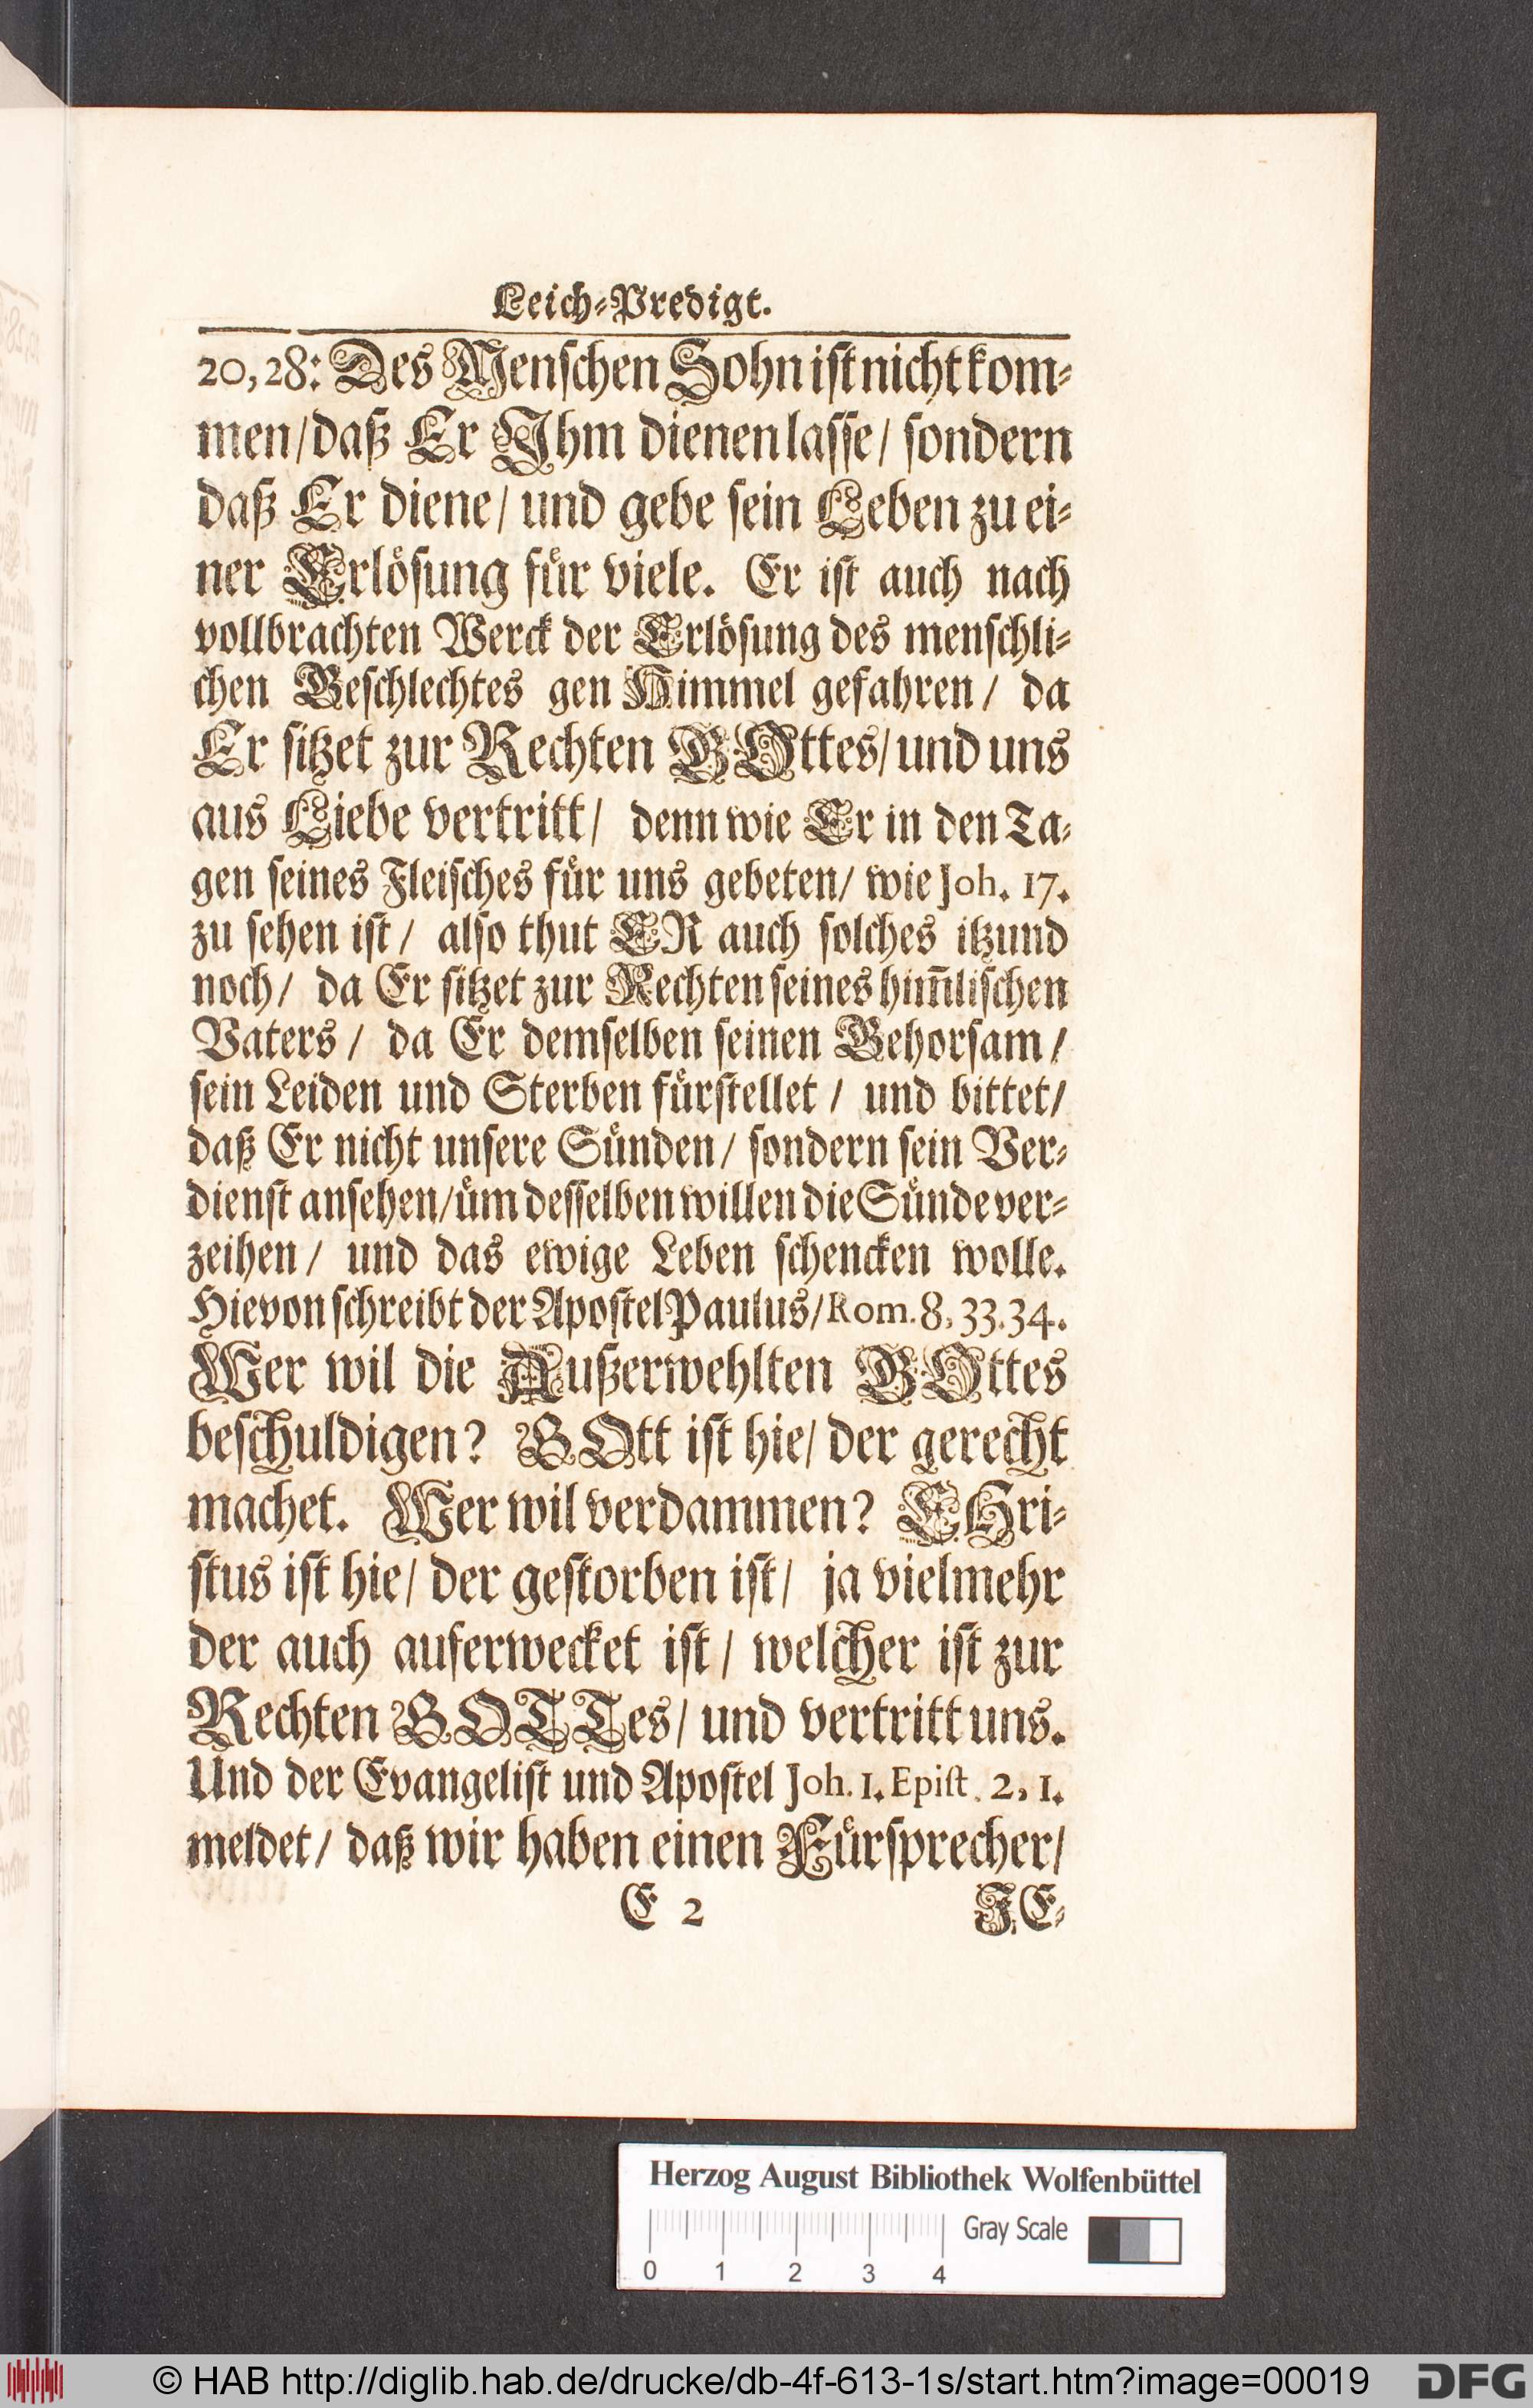 Leich-Predigt.
20, 28: Des Menschen Sohn ist nicht kom-
men/ daß Er Ihm dienen lasse/ sondern
daß Er diene/ und gebe sein Leben zu ei-
ner Erlösung für viele. Er ist auch nach
vollbrachten Werck der Erlösung des menschli-
chen Geschlechtes gen Himmel gefahren/ da
Er sitzet zur Rechten GOttes/ und uns
aus Liebe vertritt/ denn wie Er in den Ta-
gen seines Fleisches für uns gebeten/ wie Joh. 17.
zu sehen ist/ also thut ER auch solches itzund
noch/ da Er sitzet zur Rechten seines him̃lischen
Vaters/ da Er demselben seinen Gehorsam/
sein Leiden und Sterben fürstellet/ und bittet/
daß Er nicht unsere Sünden/ sondern sein Ver-
dienst ansehen/ üm desselben willen die Sünde ver-
zeihen/ und das ewige Leben schencken wolle.
Hievon schreibt der Apostel Paulus/ Rom. 8, 33. 34.
Wer wil die Außerwehlten GOttes
beschuldigen? GOtt ist hie/ der gerecht
machet. Wer wil verdammen? CHri-
stus ist hie/ der gestorben ist/ ja vielmehr
der auch auferwecket ist/ welcher ist zur
Rechten GOTTes/ und vertritt uns.
Und der Evangelist und Apostel Joh. 1. Epist. 2, 1.
meldet/ daß wir haben einen Fürsprecher/
E 2 JE-
Herzog August Bibliothek Wolfenbüttel
Gray Scale
0 1 2 3 4
© HAB http://diglib.hab.de/drucke/db-4f-613-1s/start.htm?image=00019 DFG